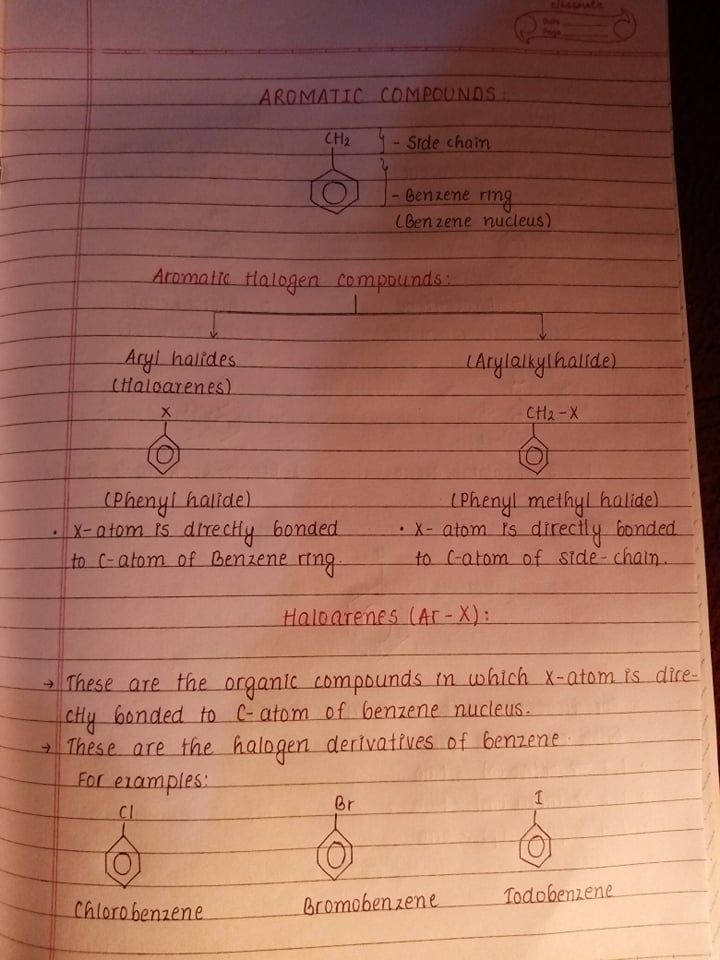 classmate
Date
Page
AROMATIC COMPOUNDS:
CH2 - Side chain
- Benzene ring
(Benzene nucleus)
Aromatic Halogen compounds:
Aryl halides (Arylalkylhalide)
(Haloarenes)
X CH2-X
(Phenyl halide) (Phenyl methyl halide)
• X-atom is directly bonded • X-atom is directly bonded
to C-atom of Benzene ring. to C-atom of side-chain.
Haloarenes (Ar-X):
→ These are the organic compounds in which X-atom is dire-
ctly bonded to C-atom of benzene nucleus.
→ These are the halogen derivatives of benzene.
For examples:
Cl Br I
Chlorobenzene Bromobenzene Iodobenzene